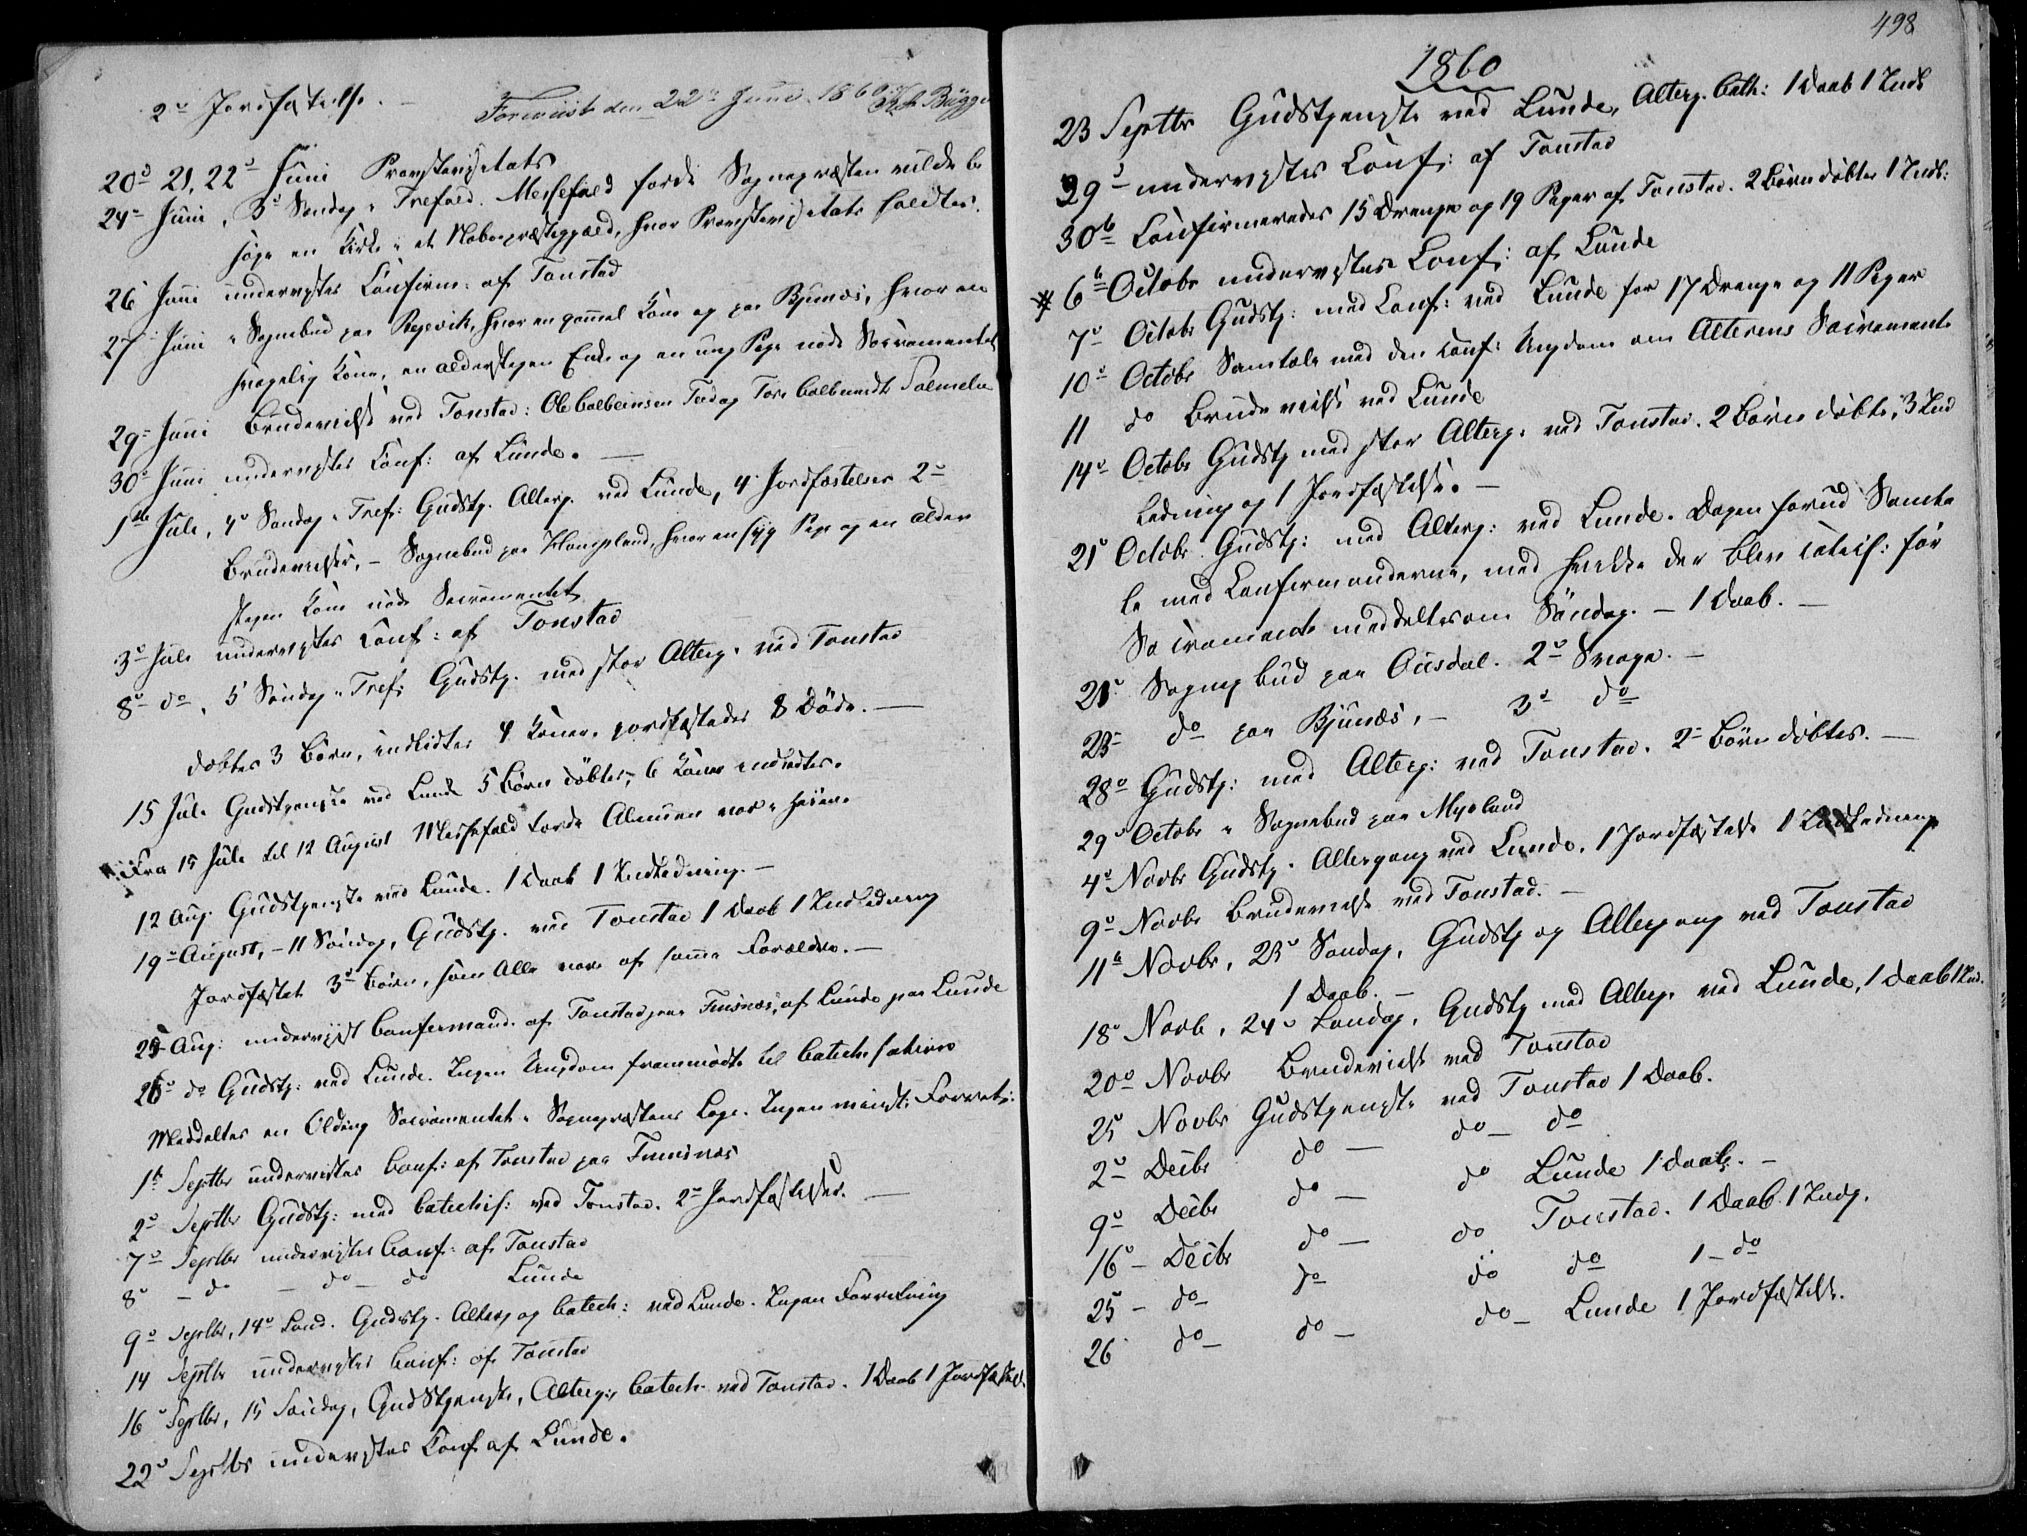 2de Jordfæstelse. —
Foreviist den 22de Juni 1860
20de 21, 22de Juni Provstevisitats
24de Juni, 3de Søndag e Trefold. Messefald fordi Sognepræsten vilde be
søge en Kirke i et Nabopræstegjæld, hvor Provstevisitats holdtes.
26 Juni undervistes Confirm: af Tonstad
27 Juni i Sognebud paa hvor en gammel Kone og paa Bjunæs, hvor en
svagelig Kone, en alderstegen Enke og en ung Pige nøde Sacramentet
29de Juni Brudevielse ved Tonstad: Ole
30te Juni undervistes Conf: af Lunde. —
1ste Juli, 4de Søndag e Tref: Gudstj. Alterg. ved Lunde, 4 Jordfæstelser 2de
Brudevielser, — Sognebud paa Haugeland, hvor en syg Pige og en alder
stegen Kone nøde Sacramentet
3de Juli undervistes Conf: af Tonstad
8de do, 5 Søndag e Tref: Gudstj. med stor Alterg. ved Tonstad
døbtes 3 Børn, indledtes 4 Koner, jordfæstedes 8 Døde. —
15 Juli Gudstjeneste ved Lunde 5 Børn døbtes, 6 Koner indledtes.
Fra 15 Juli til 12 August Messefald fordi Almuen var i Heien.
12 Aug. Gudstjeneste ved Lunde. 1 Daab 1 Indledning. —
19de August, — 11 Søndag, Gudstj. ved Tonstad 1 Daab 1 Indledning
Jordfæstet 3de Børn, som Alle vare af samme Forældre. —
25 Aug: undervist Confirmand. af Tonstad paa Fuusnæs, af Lunde paa Lunde
26de do Gudstj: ved Lunde. Ingen Ungdom fremmødte til Catechisation
Meddeltes en Olding Sacramentet i Sognepræstens Loge. Ingen minist: Forretn:
1ste Septbr undervistes Conf: af Tonstad paa Fuusnæs
2de Septbr Gudstj: med Catechis: ved Tonstad. 2de Jordfæstelser. —
7de Septbr undervistes Conf: af Tonstad
8de — do — do — do Lunde
9de Septbr, 14de Sønd. Gudstj. Alterg og Catech: ved Lunde. Ingen Forretning
14 Septbr undervistes Conf: af Tonstad
16de Septbr, 15 Søndag, Gudstjeneste, Alterg: Catech: ved Tonstad. 1 Daab 1 Jordfæstel.
22de Septbr undervistes Conf af Lunde.
498
1860
23 Septbr Gudstjeneste ved Lunde, Alterg. Cath: 1 Daab 1 Indl
29de undervistes Conf: af Tonstad
30te Confirmeredes 15 Drenge og 19 Piger af Tonstad. 2 Børn døbtes 1 Indl:
6te Octobr undervistes Conf: af Lunde
7de Octobr Gudstj: med Conf: ved Lunde for 17 Drenge og 11 Piger
10de Octobr Samtale med den conf: Ungdom om Alterens Sacramente
11 do Brudevielse ved Lunde
14de Octobr Gudstj med stor Alterg. ved Tonstad. 2 Børn døbte, 3 Ind
ledning og 1 Jordfæstelse. —
21de Octobr Gudstj: med Alterg: ved Lunde. Dagen forud Samta
le med Confirmanderne, med hvilke der blev catech: før
Sacramentet meddeltes om Søndag. — 1 Daab. —
21de Sognebud paa Ousdal. 2de Svage. —
23de do paa Bjunæs, — 3de do
28de Gudstj: med Alterg: ved Tonstad. 2de Børn døbtes. —
29de Octobr i Sognebud paa Mydland
4de Novbr Gudstj. Altergang ved Lunde. 1 Jordfæstelse 1 Indledning
9de Novbr Brudevielse ved Tonstad. —
11te Novbr, 23de Søndag, Gudstj og Altergang ved Tonstad
1 Daab. —
18de Novb, 24de Søndag, Gudstj med Alterg. ved Lunde, 1 Daab 1 Ind.
20de Novbr Brudevielse ved Tonstad
25 Novbr Gudstjeneste ved Tonstad 1 Daab.
2de Decbr do — do — do
9de Decbr do — do Lunde 1 Daab. —
16de — Decbr do — do Tonstad. 1 Daab. 1 Indg.
25 — do do do do 1 — do
26 do — do — do — Lunde 1 Jordfæstelse.